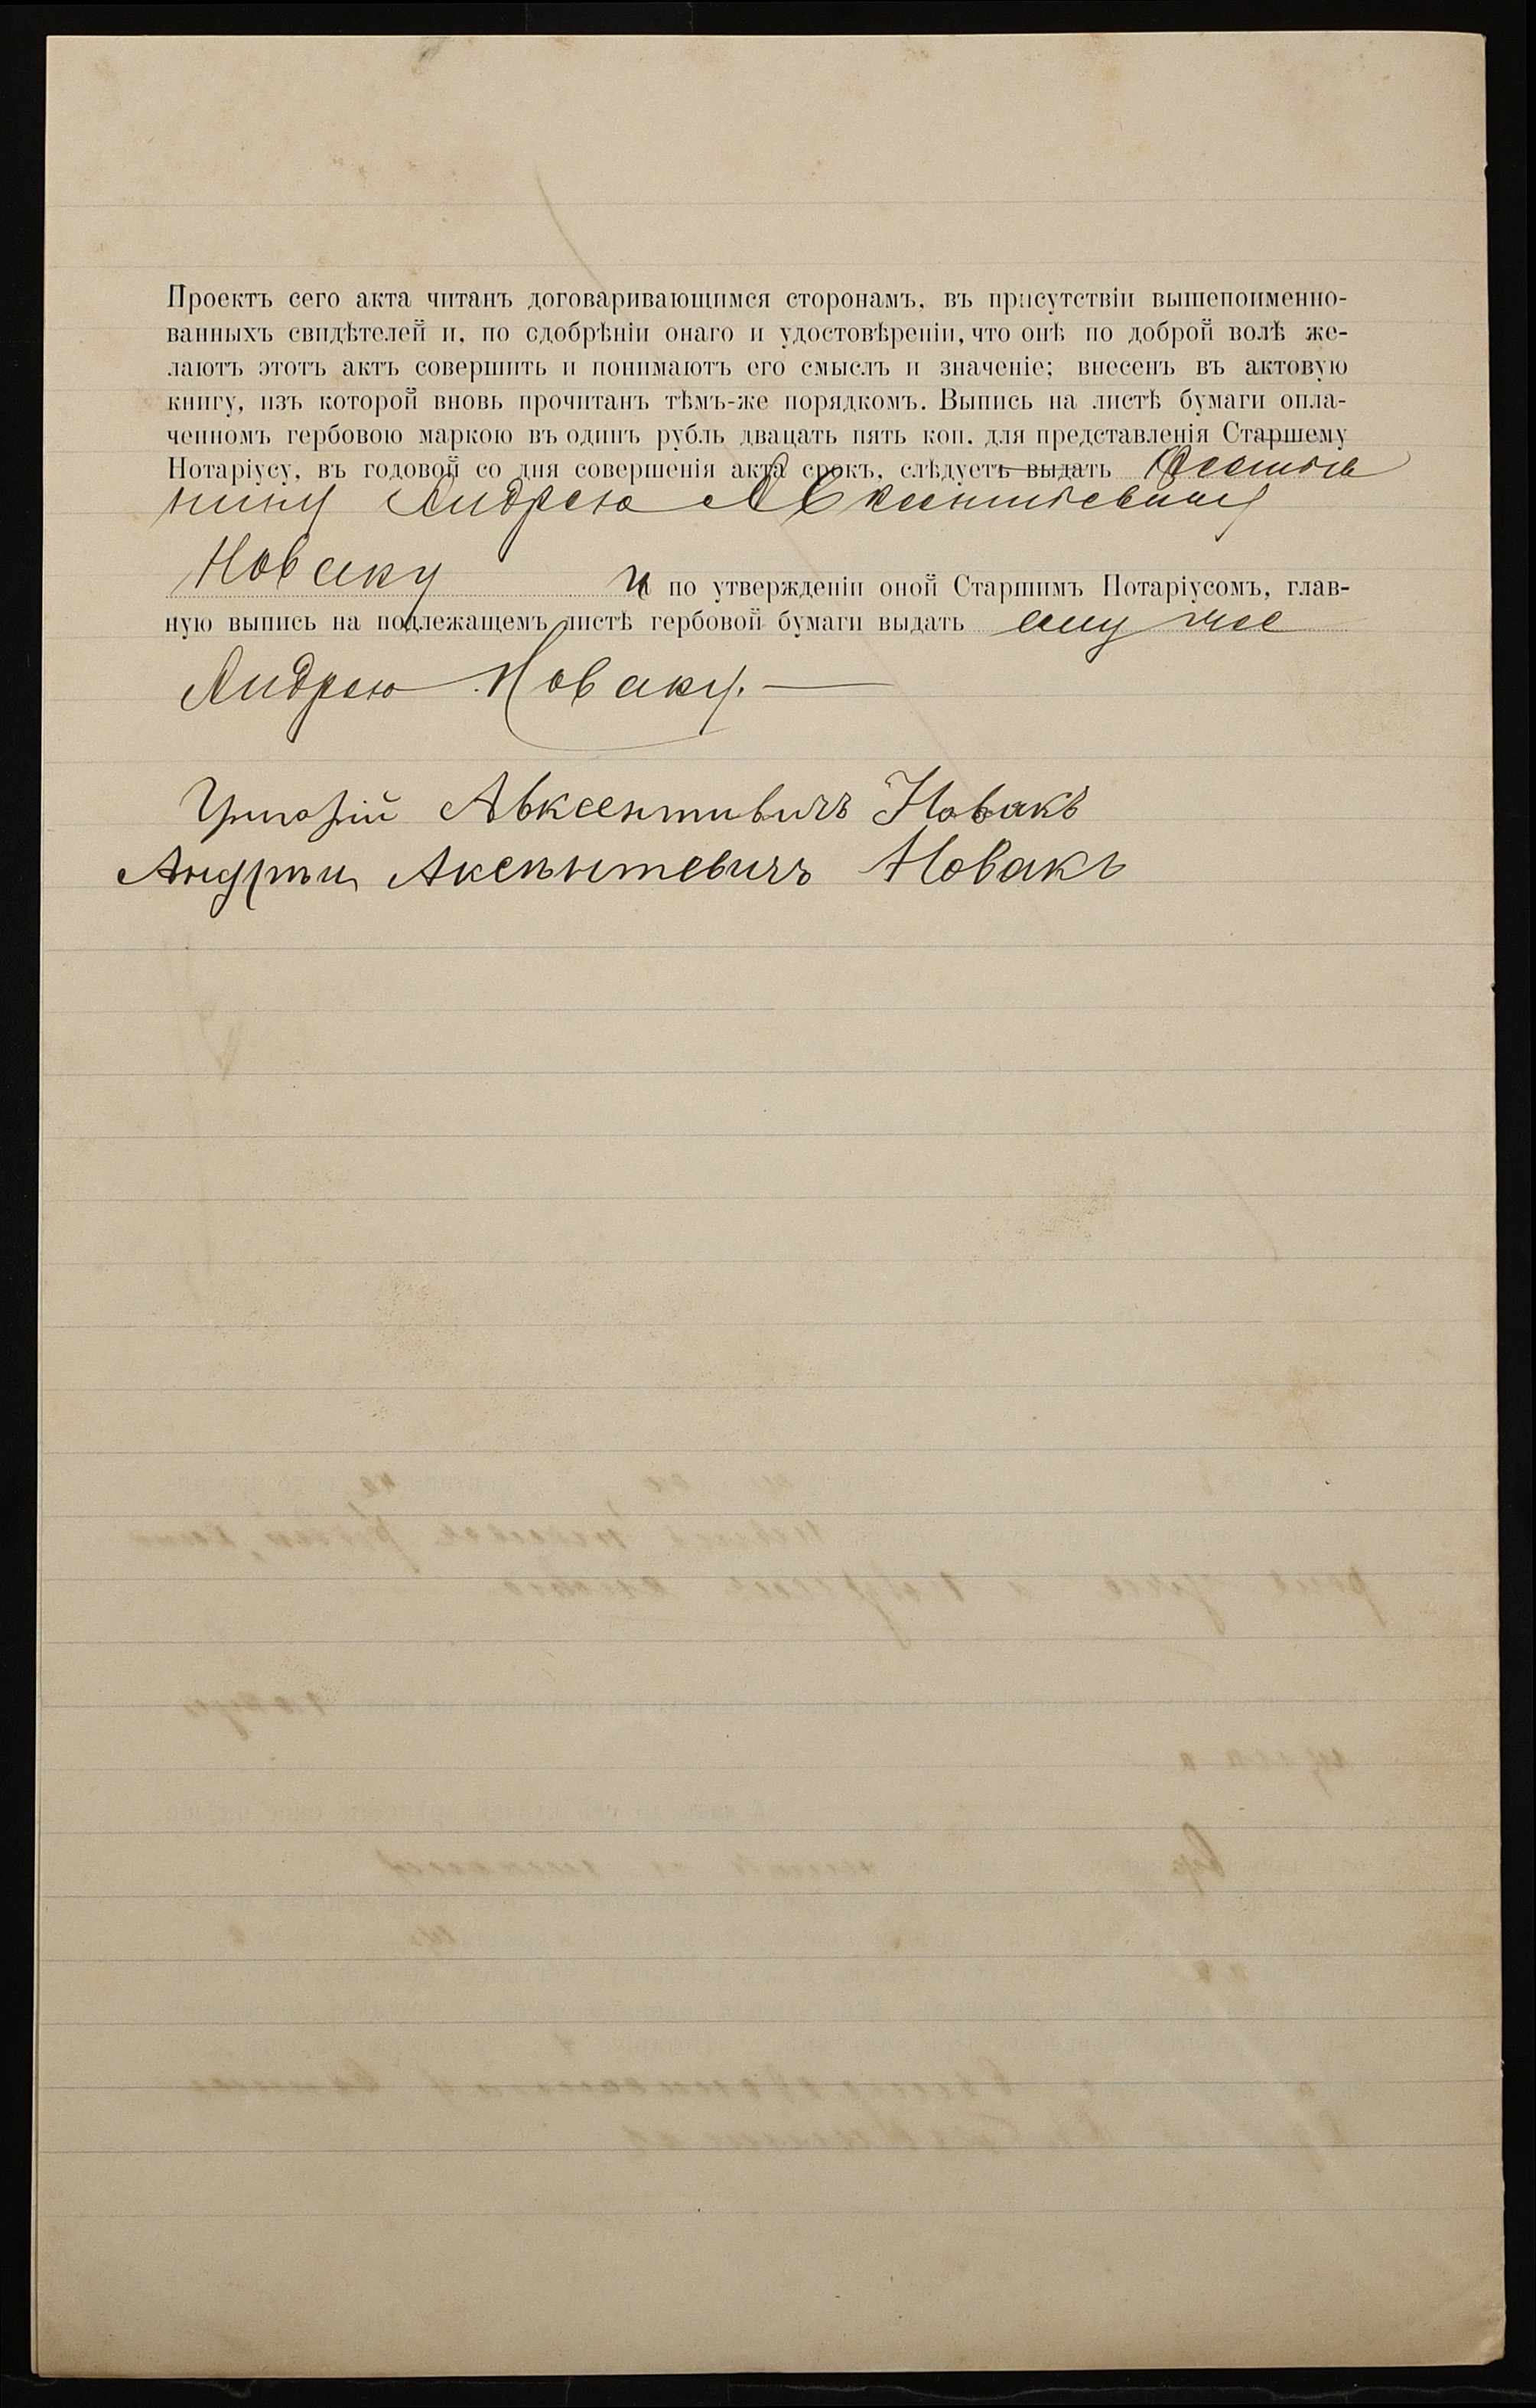 Проектъ сего акта читанъ договаривающимся сторонамъ, въ присутствіи вышепоименно-
ванныхъ свидѣтелей и, по одобрѣніи онаго и удостовѣреніи, что онѣ по доброй волѣ же-
лаютъ этотъ актъ совершить и понимаютъ его смыслъ и значеніе; внесенъ въ актовую
книгу, изъ которой вновь прочитанъ тѣмъ-же порядкомъ. Выпись на листѣ бумаги опла-
ченномъ гербовою маркою въ одинъ рубль двацать пять коп. для представленія Старшему
Нотаріусу, въ годовой со дня совершенія акта срокъ, слѣдуетъ выдать Крестья
нину Андрею Авксентьевичу
Новаку и по утвержденіи оной Старшимъ Нотаріусомъ, глав-
ную выпись на подлежащемъ листѣ гербовой бумаги выдать ему же
Андрею Новаку. —
Григорій Авксентивичъ Новакъ
Андрѣи Аксентевичъ Новакъ